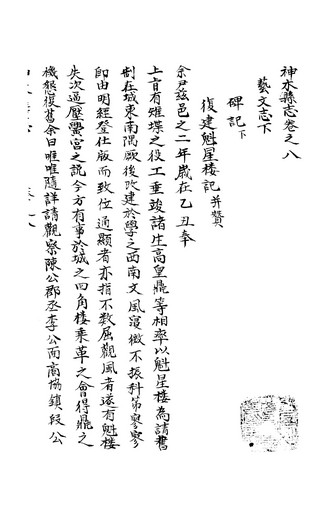 神木縣志卷之八
藝文志下
碑記下
復建魁星樓記并贊
余尹茲邑之二年歲在乙丑奉
上旨有雉堞之役工垂竣諸生高皇鼎等相率以魁星樓為請書
制在城東南隅厥後改建於學之西南文風寖微不振科第寥寥
即由明經登仕版而致位通顯者亦指不數屈觀風者遂有魁樓
失次過壓黌宮之說今方有事於城之四角樓乘革之會得鼎之
機懇復舊余曰唯唯隨詳請觀察陳公郡丞李公而商協鎮段公